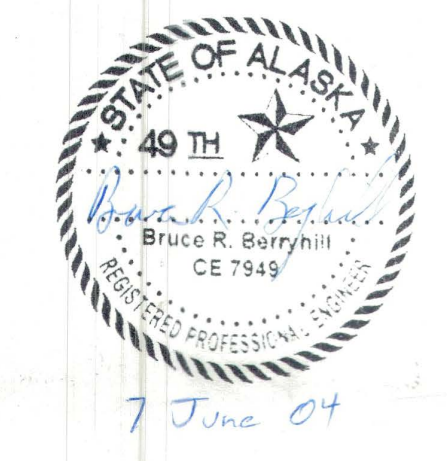 STATE OF ALASKA
49 TH
Bruce R. Berryhill
Bruce R. Berryhill
CE 7949
REGISTERED PROFESSIONAL ENGINEER
7 June 04